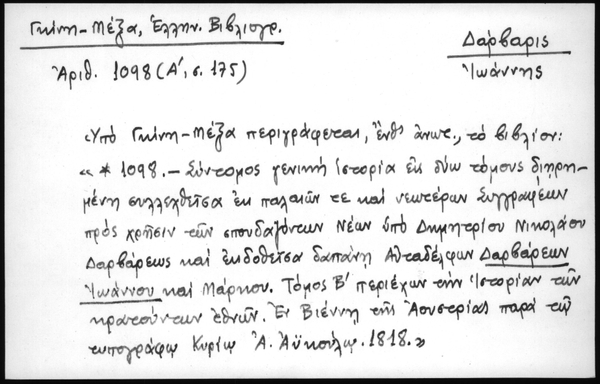 Γκίνη-Μέξα, Ἑλλην. Βιβλιογρ.
Δάρβαρις
Ἀριθ. 1098 (Α΄, σ. 175)
Ἰωάννης
Ὑπὸ Γκίνη-Μέξα περιγράφεται, ἔνθ' ἀνωτ., τὸ βιβλίον:
« * 1098. – Σύντομος γενικὴ ἱστορία εἰς δύω τόμους διῃρη-
μένη συλλεχθεῖσα ἐκ παλαιῶν τε καὶ νεωτέρων συγγραφέων
πρὸς χρῆσιν τῶν σπουδαζόντων Νέων ὑπὸ Δημητρίου Νικολάου
Δαρβάρεως καὶ ἐκδοθεῖσα δαπάνῃ Αὐταδέλφων Δαρβάρεων
Ἰωάννου καὶ Μάρκου. Τόμος Β΄ περιέχων τὴν Ἱστορίαν τῶν
κρατούντων ἐθνῶν. Ἐν Βιέννῃ τῆς Ἀουστρίας παρὰ τῷ
τυπογράφῳ Κυρίῳ Ἀ. Ἀϋκούλῳ. 1818.»